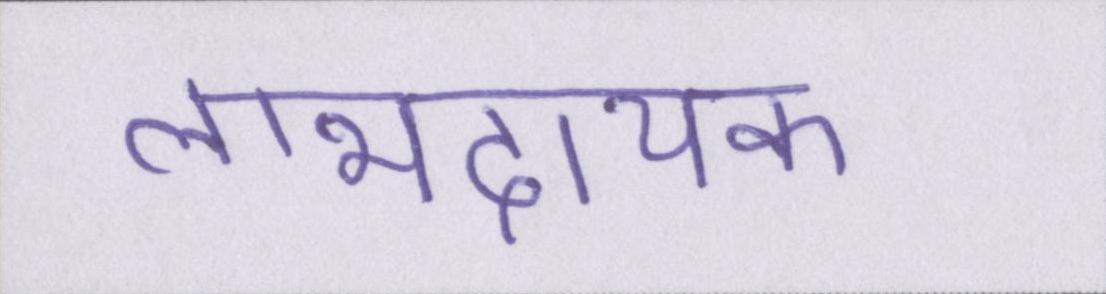 लाभदायक